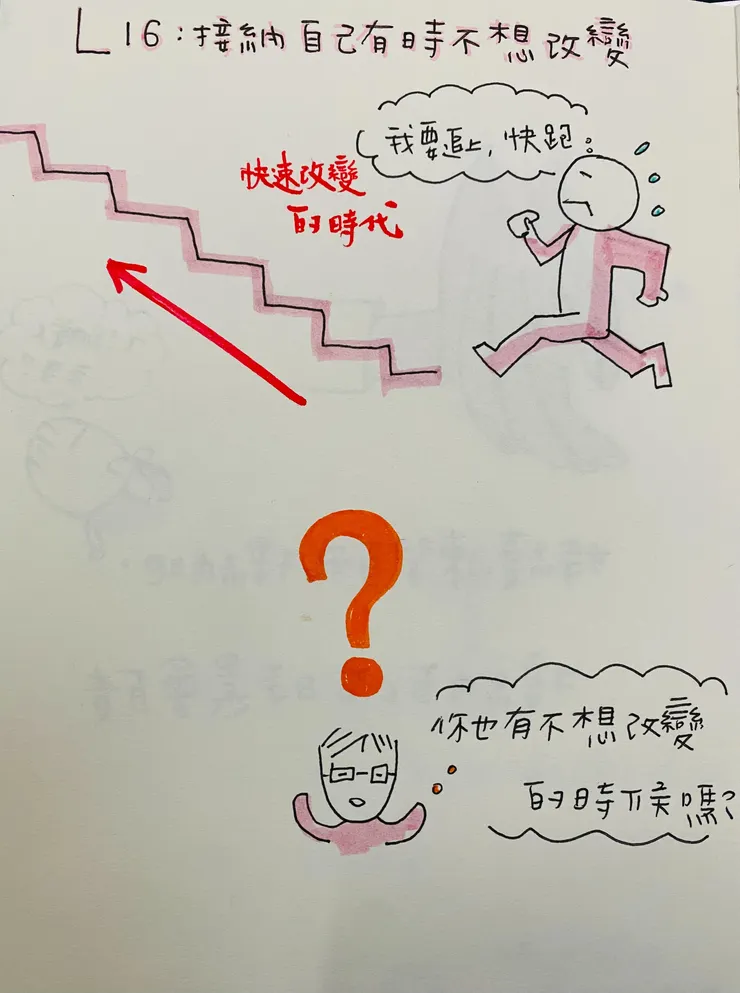 L16:接納自己有時不想改變
我要追上,快跑
快速改變
的時代
?
你也有不想改變
的時候嗎?